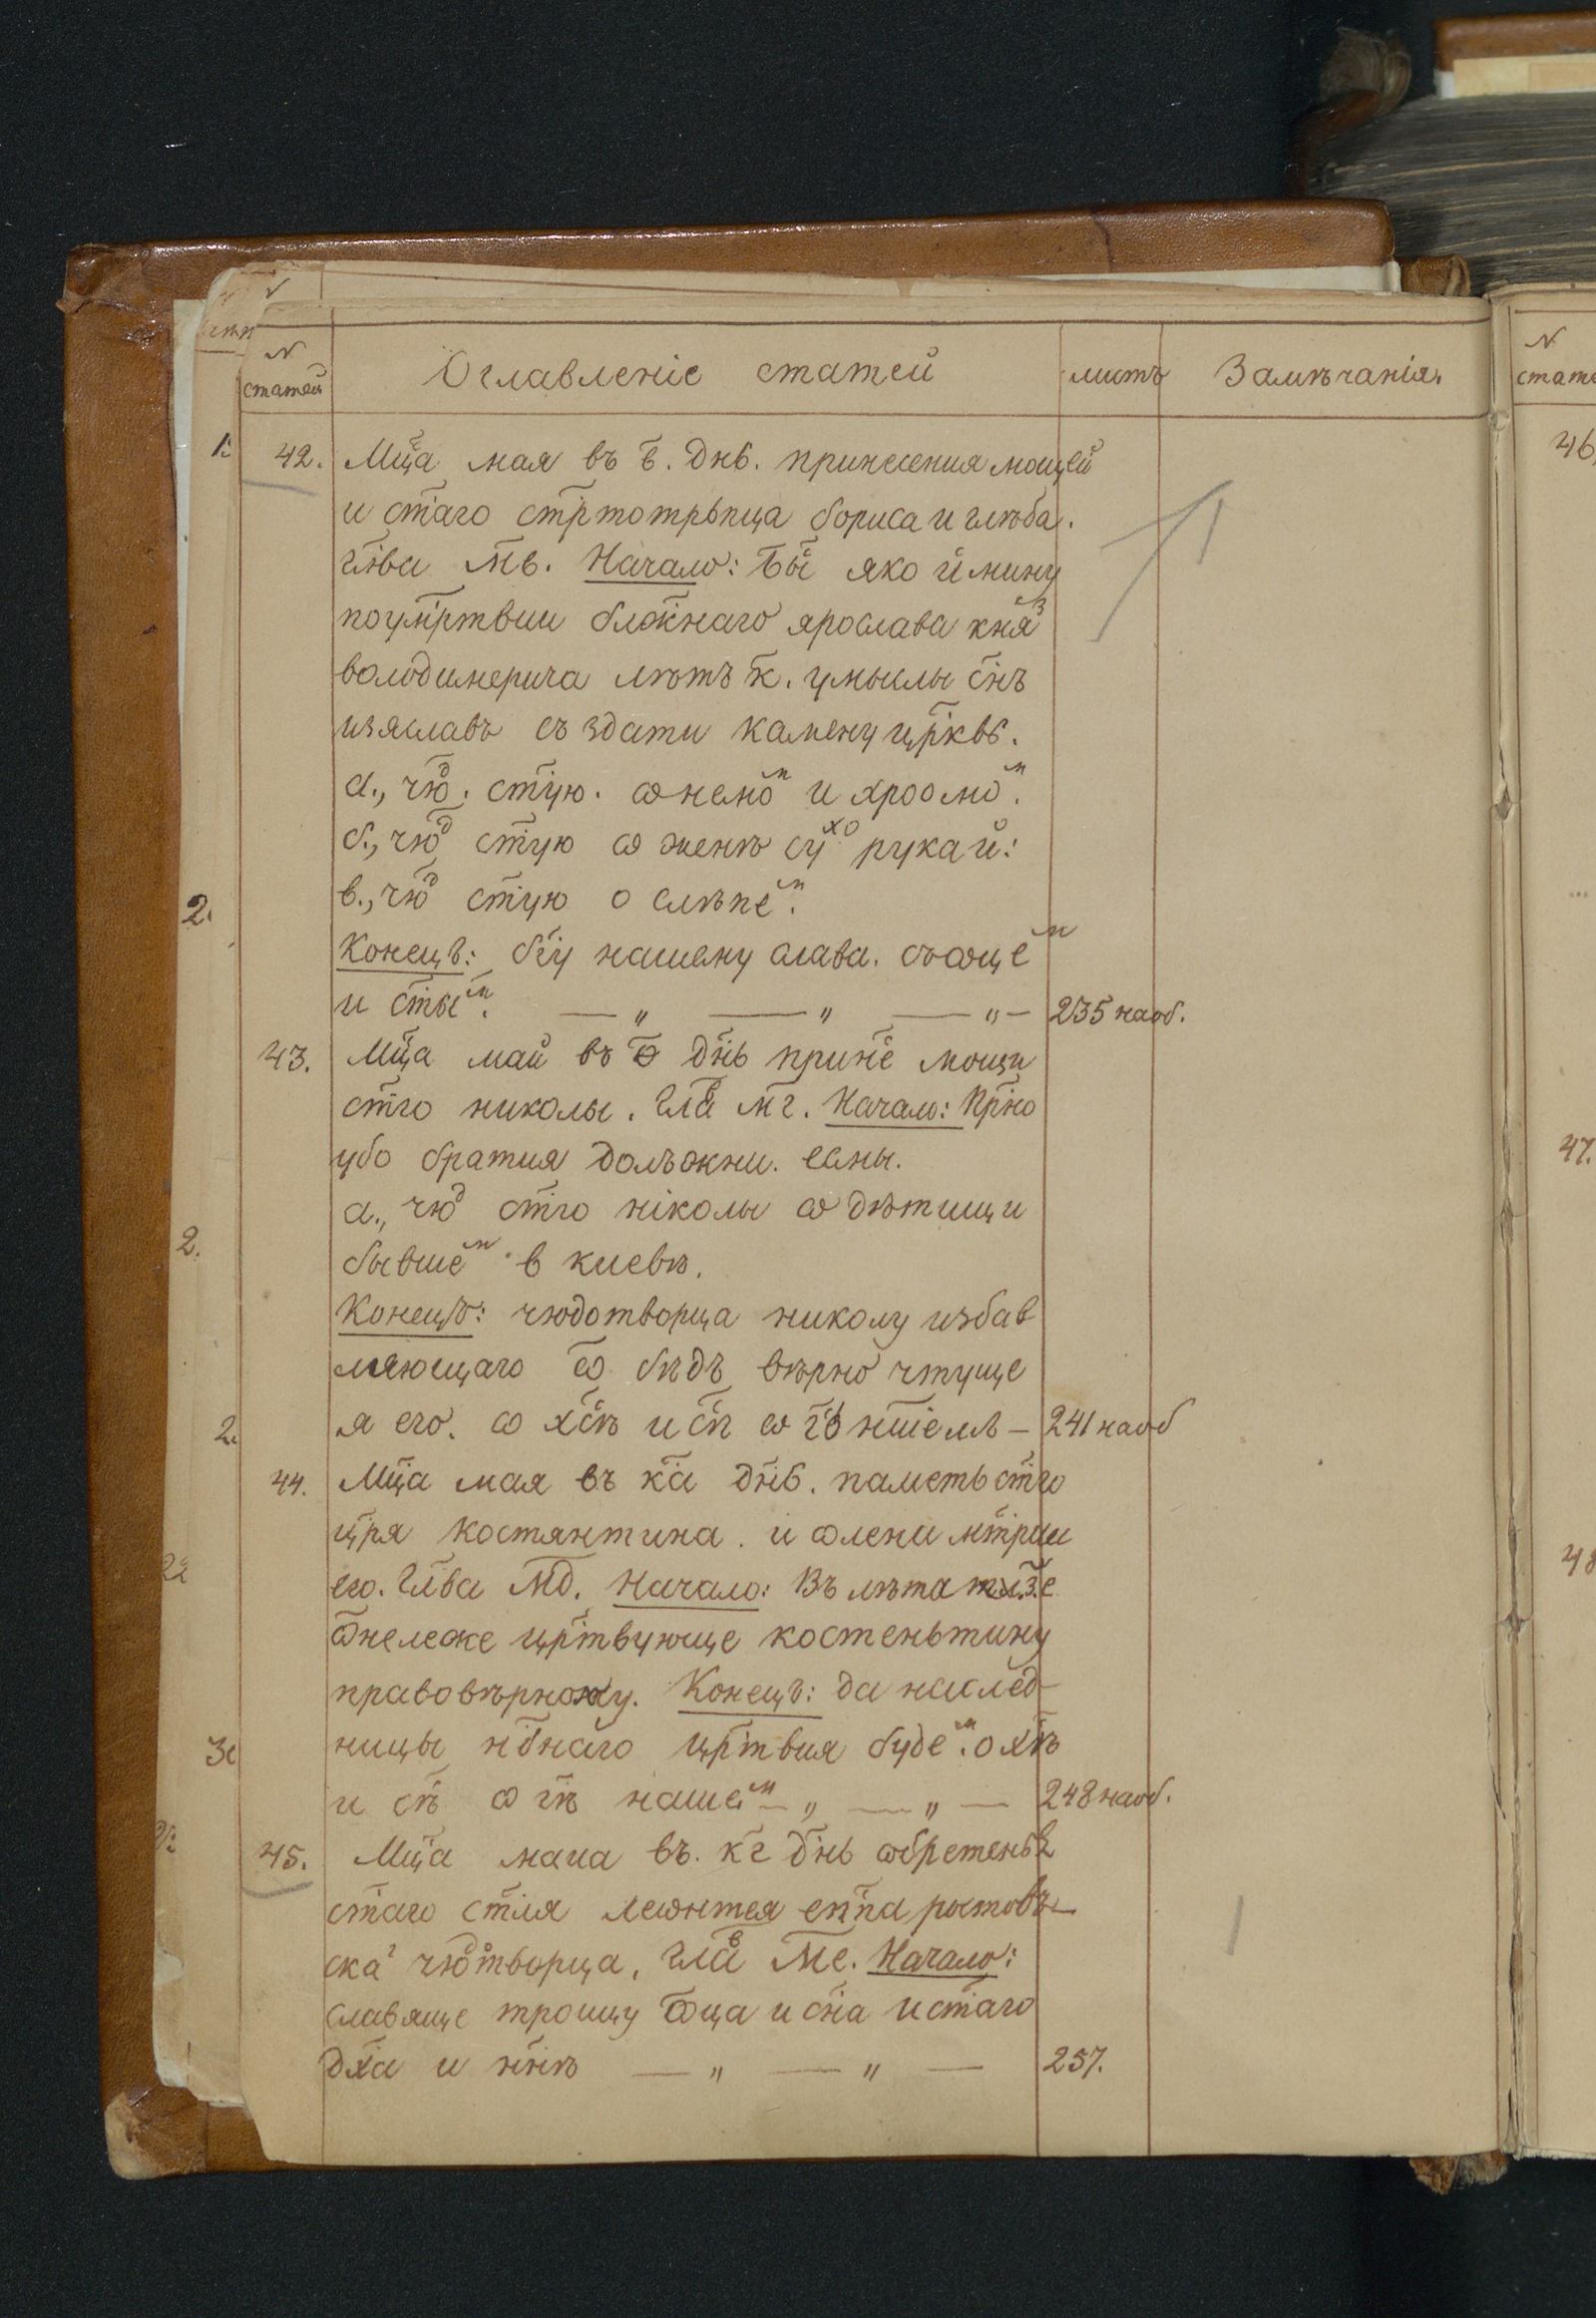 N статей Оглавленіе статей листъ Замѣчанія.
42. Мц҃а мая въ в҃. днь. принесения мощей
и ст҃аго стр҃тотрьпца бориса и глѣба.
гл҃ва м҃в. Начало: Бы҃ яко и мину
по ум҃ртвии блж҃наго ярослава кня҃ з
володимерича лѣтъ к҃. умыслы сн҃ъ
изяславъ създати камену цр҃квь.
а., чю҃д. ст҃ую. ѡ немо҃м и хромо҃м.
б., чю҃д ст҃ую ѡ женѣ сухо рукаи:
в., чю҃д ст҃ую о слѣпе҃м.
Конецъ: бг҃у нашему слава. съ ѡце҃м
и ст҃ы м. — „ — „ — „ — 235 наоб.
43. Мц҃а май въ ѳ҃ дн҃ь прине҃ мощи
ст҃го николы. Гла҃в м҃г. Начало: Пр҃но
убо братия долъжни. есмы.
а., чю҃д ст҃го ніколы ѡ дѣтищи
бывше҃м в киевѣ.
Конецъ: чюдотворца николу избав
ляющаго ѿ бѣдъ вѣрно чтуще
я его. ѡ хс҃ѣ и с҃ѣ ѡ г҃ѣ нш҃емъ — 241 наоб
44. Мц҃а мая въ к҃а дн҃ь. паметь ст҃го
цр҃я костянтина. и ѡлени мт҃рии
его. Гл҃ва М҃д. Начало: Въ лѣта т҃и.з.е
ѿнележе цр҃твующе костеньтину
правовѣрному. Конецъ: да наслед-
ницы нб҃наго цр҃твия буде҃м. о х҃ѣ
и с҃ѣ ѡ г҃ѣ наше м — „ — „ — 248 наоб.
45. Мц҃а маиа въ. к҃г дн҃ь ѡбретеньѣ
ст҃аго ст҃ля леѡнтея еп҃па ростовъ-
ска г чю҃дтворца. Гла҃в М҃е. Начало:
славяще троицу ѿца и сн҃а и ст҃аго
дх҃а и нн҃ѣ — „ — „ — 257.
46.
47.
48